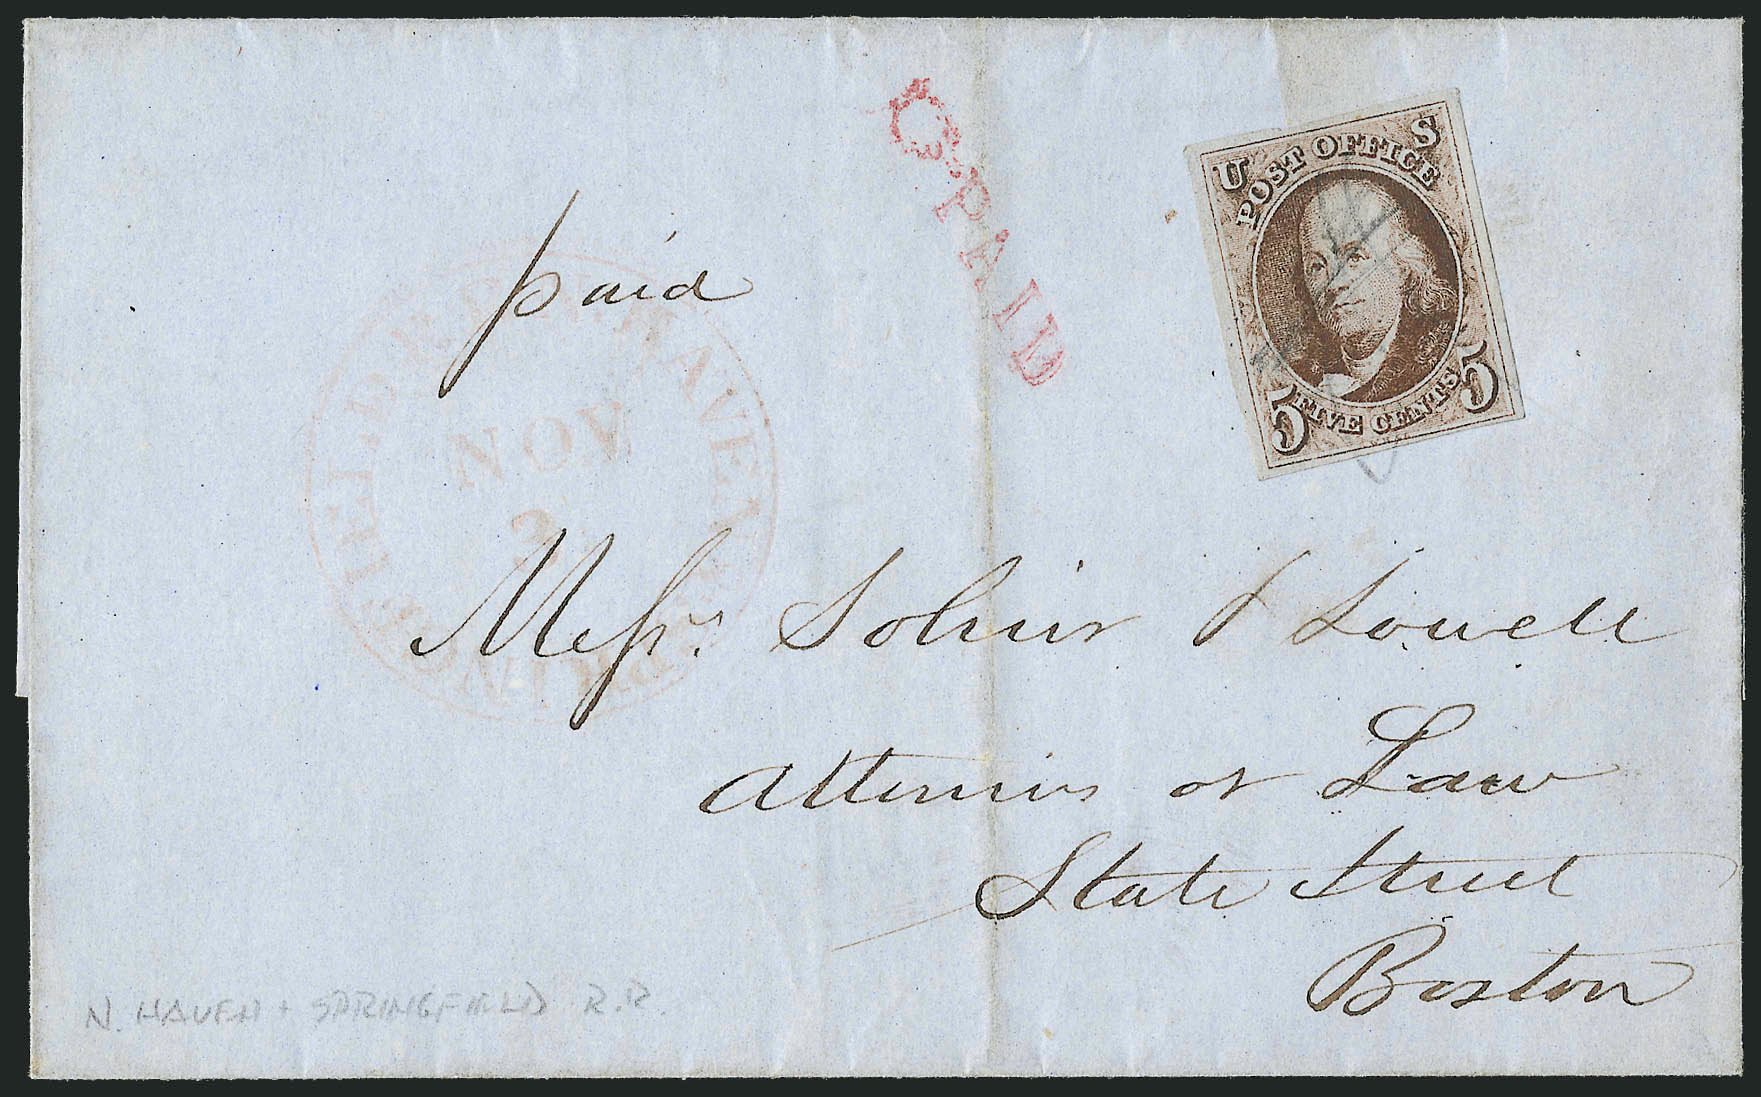 PAID
U S
POST OFFICE
5 FIVE CENTS 5
paid
N. HAVEN & SPRINGFIELD R.R.
NOV
2
Messrs. Sohier & Lowell
Attornies at Law
State Street
Boston
N. HAVEN + SPRINGFIELD R.R.